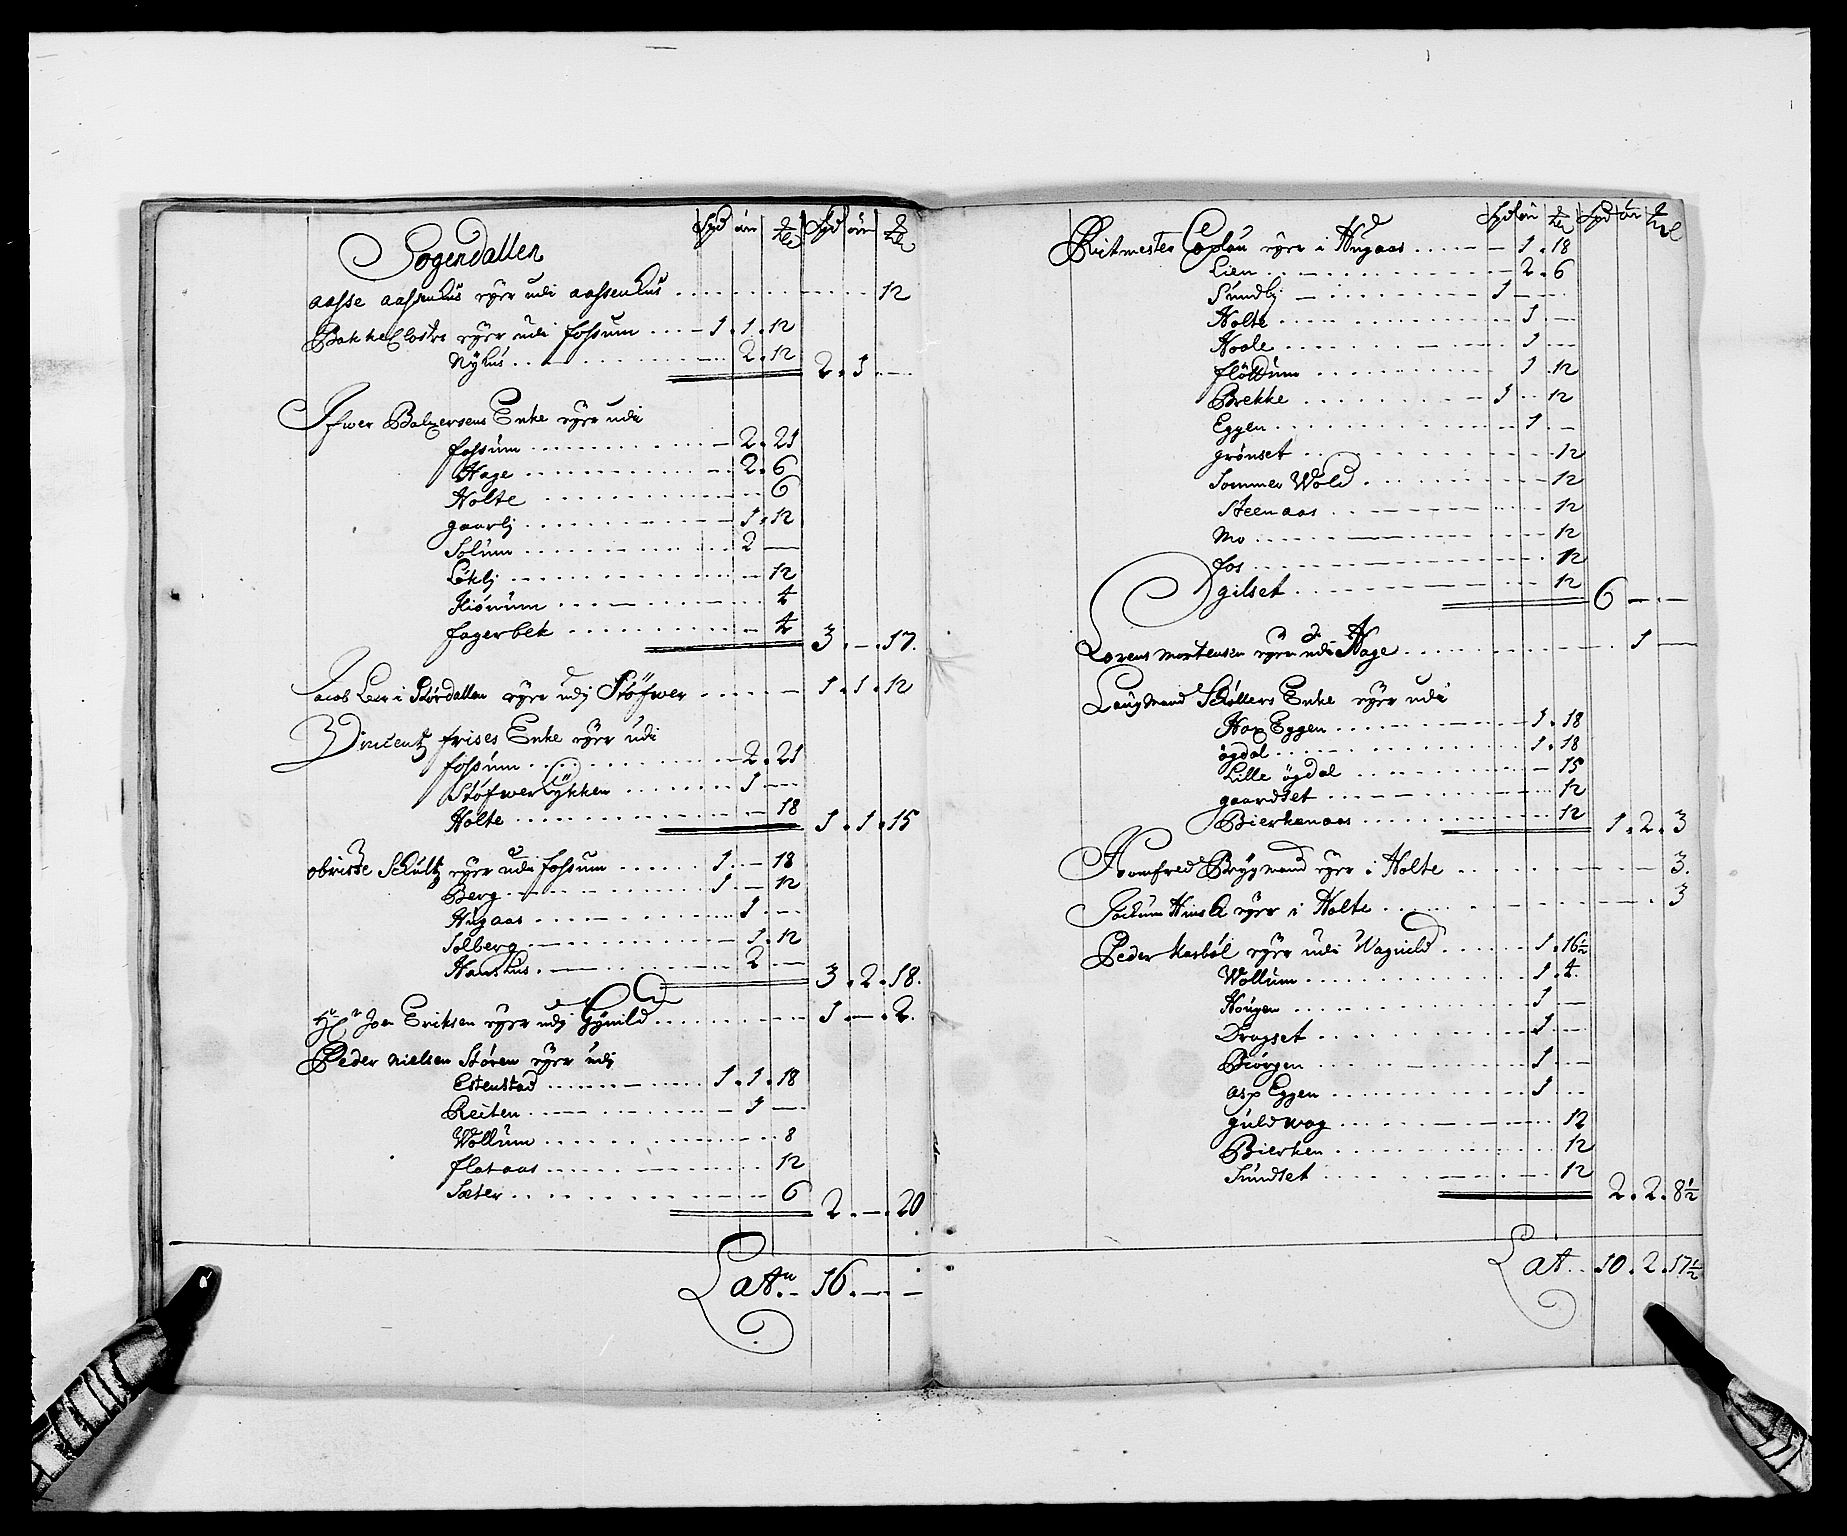 Spd ön 𝔐l Spd ön 𝔐l
Sogendallen
aasse aassenhus eyer udi aassenhus 12
Bakke Closter eyer udi fossum 1 . 1 . 12
Nyhus 2 . 12 2 . 1 . —
Ifwer Baltzersens Enke eyer udi
fossum — 2 . 21
Hage — 2 . 6
Holte 6
gaarlj — 1 . 12
Solum 2 —
Löklj 12
4
fagerbek 4 3 . — . 17.
Jacob Leer i Stördallen eyer udj Stöfwer — 1 . 1 . 12
Vincentz frises Enke eyer udi
fossum — 2 . 21
Stöfwerlÿkken 1 —
Holte 18 1 . 1 . 15
obriste Schultz eyer udi fossum 1 . — 18
Berg 1 — 12
Hugaas 1 . —
Solberg 1 . 12
Hanshus 2 — 3 . 2 . 18.
Hr Joen Eriksen eyer udj Gynild 1 . — . 2.
Peder Nielsen Stören eyer udj
Estenstad 1 . 1 . 18
Reiten — 1 —
Wollum 8
flataas 12
Sæter 6 2 . — . 20
Latr . — 16 . — . —
Spd ön 𝔐l Spd ön 𝔐l
Ritmester Coplau eyer i Hugaas — 1 . 18
Lien — 2 . 6
Sundlj 1 —
Holte 1 . —
Hoole 1 —
flöttum 1 12
Brekke 1 . . 12
Eggen 1 . —
grönset 12
Sommer Wold 12
Steenaas 12
Mo 12
fos 12
Egilset 12 6 — . —
Lorens Mortensen eyer udi Hage 1 —
Laugmand Schöllers Enke eyer udi
Hox Eggen 1 . 18
ögdal 1 . 18
Lille ögdal — 15
gaardset 12
Bierkenaas 12 1 . 2 . 3
Brygmand eyer i Holte 3.
Jockum eyer i Holte 3
Peder Kasböl eyer udi Wagnild 1 . 16½
Wollum 1 . 4.
Hougen 1 —
Dragset 1 —
Biörgen 1 —
asp Eggen 1 . . .
guldwog 12
Bierken 12
Sundset 12 2 . 2 . 8½
Lat . . 10 . 2 . 17½